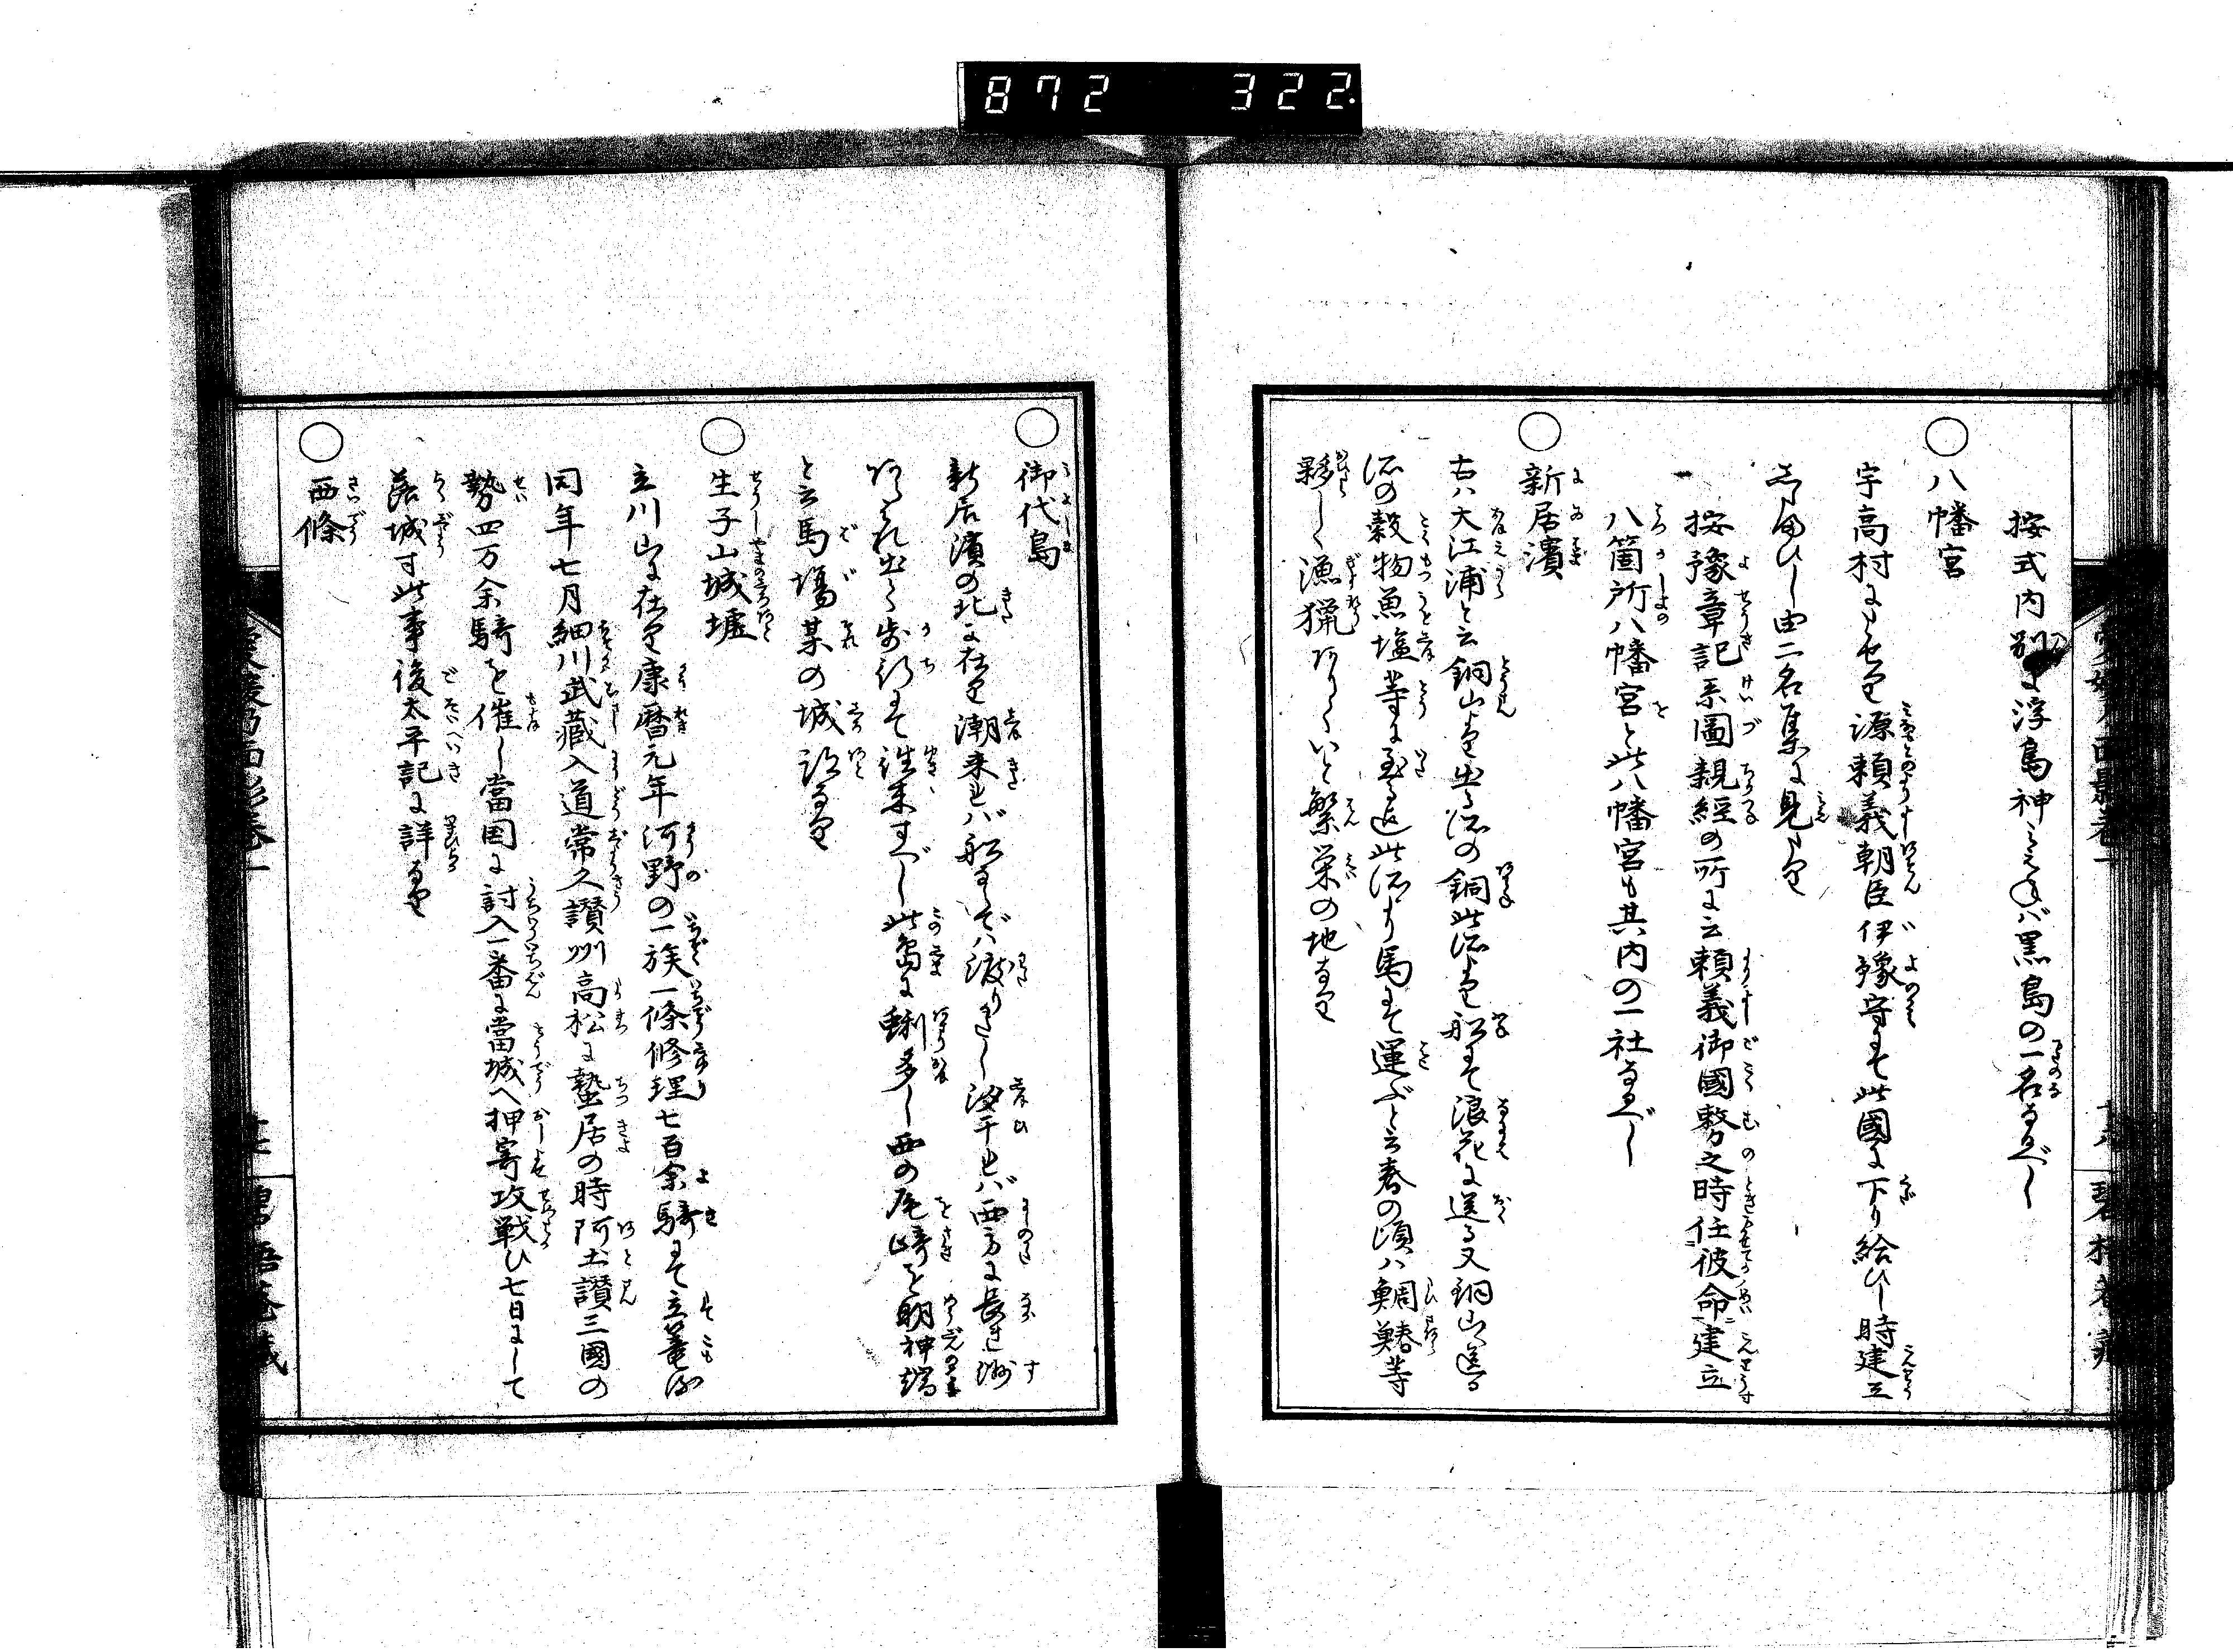 872 322
按式内別ニ浮島神ミえねバ黒島の一名なるべし
八幡宮
宇高村にませり源頼義朝臣伊豫守にて此國に下り給ひし時建立
し由二名集に見えたり
按豫章記系圖親經の所に云頼義御國務之時任彼命建立
八箇所八幡宮と此八幡宮も其内の一社なるべし
新居濱
古ハ大江浦と云銅山より出る所の銅此所より船にて浪花に送る又銅山へ送る
所の穀物魚塩等に至る迄此所より馬にて運ぶと云春の頃ハ鯛鰆等
夥しく漁猟ありていと繁栄の地なり
御代島
新居濱の北に在り潮来れバ船ならでハ渡りがたし汐干れバ西方に長き洲
あらはれ出て歩行にて往来すべし此島に蜊多し西の尾崎を明神端
と云馬場某の城跡なり
生子山城墟
立川山に在り康暦元年河野の一族一條修理七百余騎にて立篭る
同年七月細川武藏入道常久讃州高松に蟄居の時阿土讃三國の
勢四万余騎を催し當国に討入一番に當城へ押寄攻戦ひ七日にして
落城す此事後太平記に詳なり
西條